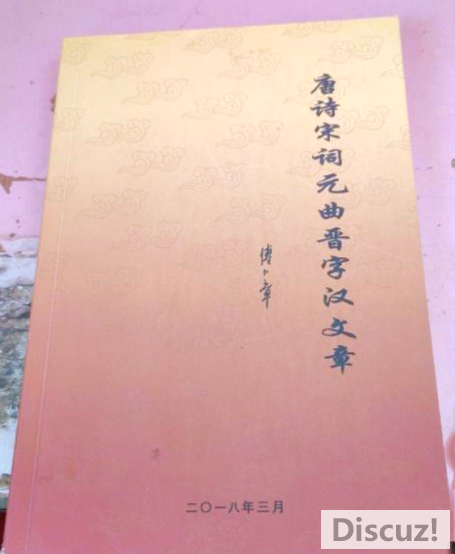 唐诗宋词元曲晋字汉文章
二〇一八年三月
Discuz!